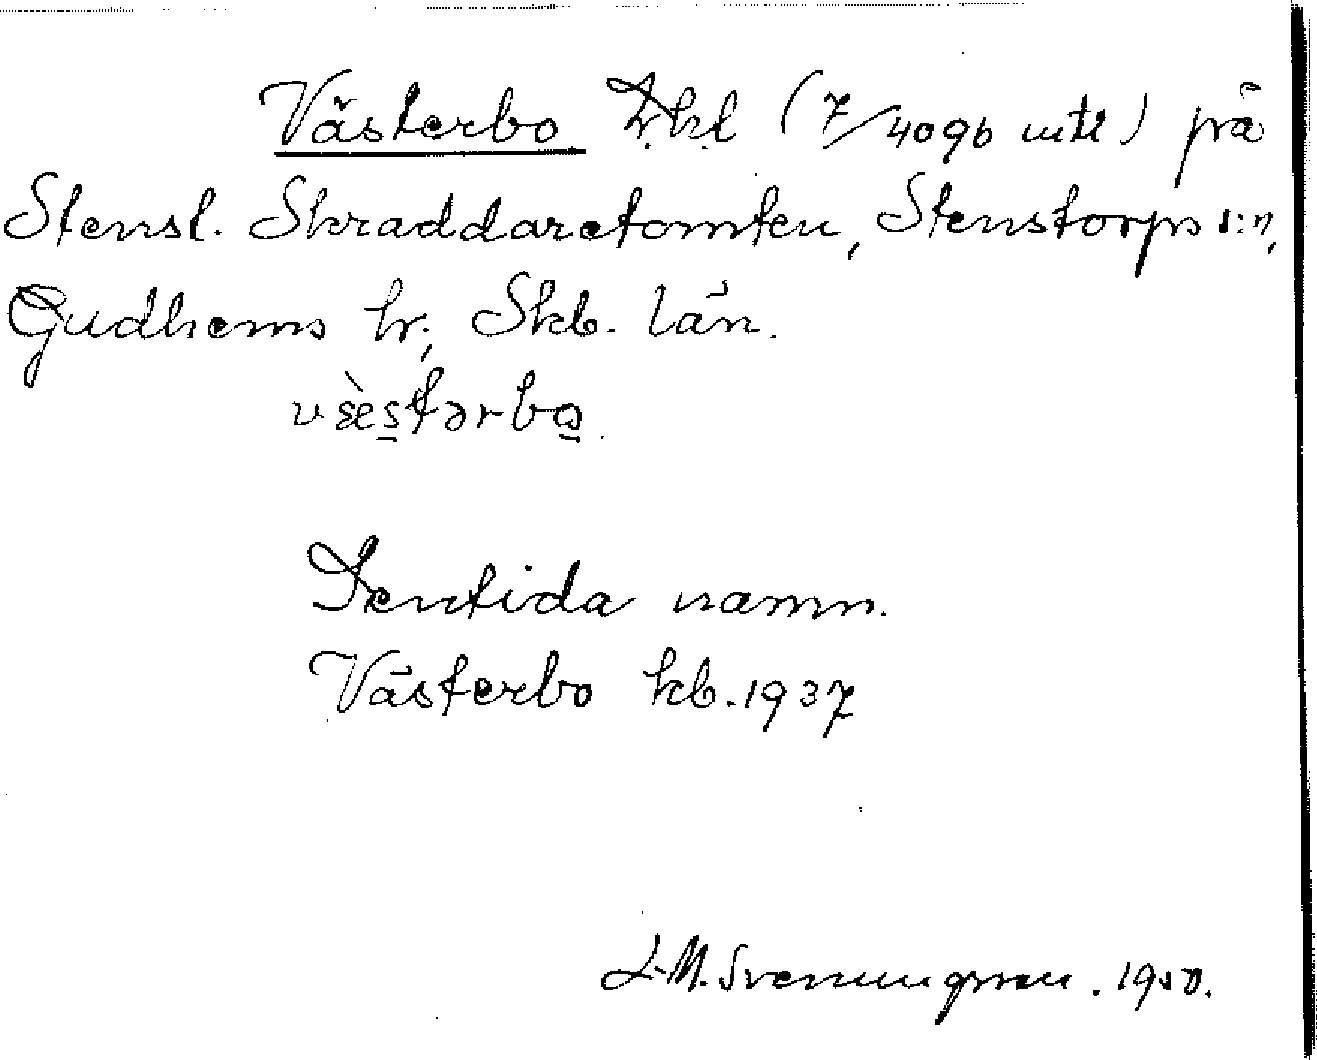 Västerbo (7/4096 mtl) på
Stensl. Skraddaretomten, Stenstorps s:n,
Gudhems hr, Skb. län.
væ̀stərbo.
Sentida namn.
Västerbo kb. 1937
L.M. Svenungsson. 1950.